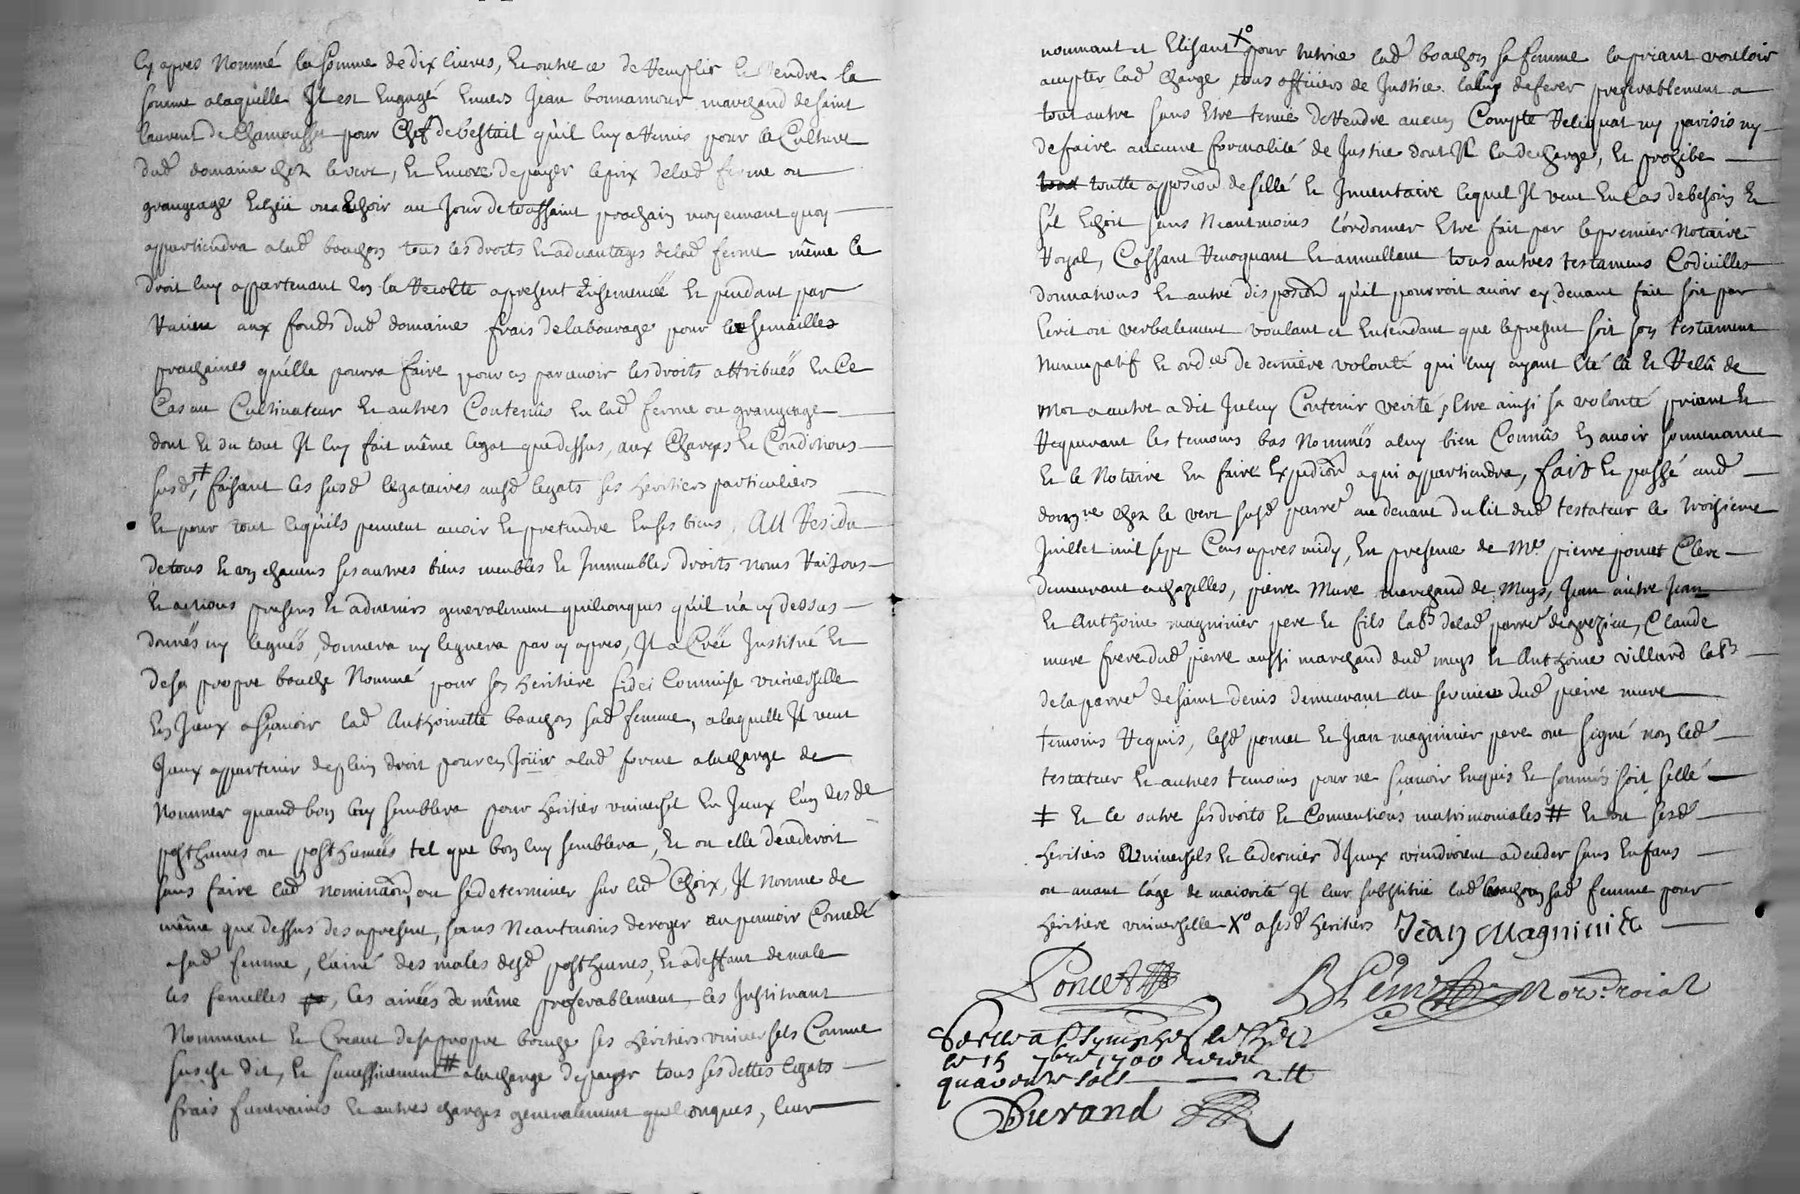 Cy apres Nommé la somme de dix livres, Et outre ce de Remplir Et Rendre la
somme a laquelle Il est Engagé Envers Jean bonnamour marchand de saint
laurent de Chamousset pour Chef de bestail qu'il luy a Remis pour la Culture
dud domaine chez le vere, Et Encore de payer le prix de lad ferme ou
grangeage Echeü ou a Echoir au Jour de toussaint prochain moyennant quoy
appartiendra a lad bouchon tous les droits Et advantages de lad ferme même le
droit luy appartenant En la Recolte a present Ensemencée Et pendant par
Racine aux fonds dud domaine frais de labourage pour les semailles
prochaines qu'elle pourra faire pour en parcevoir les droits attribués En Ce
Cas au Cultivateur Et autres Contenus En lad ferme ou grangeage
dont Et du tout Il luy fait même legat que dessus, aux Charges Et Conditions
susd, ‡ faisant les susd legataires ausd legats ses heritiers particuliers
Et pour tout ce qu'ils peuvent avoir Et pretendre En ses biens, AU Residu
de tous Et un chacuns ses autres biens meubles Et Immeubles droits noms Raisons
Et actions presens Et advenirs generalement quelconques qu'il n'a cy dessus
donnés ny legués, donnera ny leguera par cy apres, Il a Créé Institué Et
de sa propre bouche Nommé pour son heritiere fidei Commise universelle
En Iceux a sçavoir lad Anthoinette bouchon sad femme, a laquelle Il veut
Iceux appartenir de plein droit pour en Joüir a lad forme a la charge de
Nommer quand bon luy semblera pour heritier universel En Iceux l'un desd
posthumes ou posthumées tel que bon luy semblera, Et ou elle decederoit
sans faire lad nominaõn, ou se determiner sur led Choix, Il nomme de
même que dessus des a present, sans Neantmoins deroger au pouvoir Concedé
a sad femme, l'ainé des males desd posthumes, Et a deffaut de male
les femelles, les ainées de même preferablement les Instituant
Nommant Et Creant de sa propre bouche ses heritiers universels Comme
sus est dit, Et successivement # a la charge de payer tous ses dettes legats
frais funeraires Et autres charges generalement quelconques, leur
nommant et Elisant X° pour tutrice lad bouchon sa femme la priant vouloir
accepter lad charge tous officiers de Justice la luy deferer preferablement a
tout autre sans Etre tenüe de Rendre aucun Compte Reliquat ny parisis ny
de faire aucune formalité de Justice dont Il la decharge, Et prohibe
toutte apposiõn de sellé Et Inventaire lequel Il veut En Cas de besoin Et
s'il Echoit sans Neantmoins l'ordonner Etre fait par le premier Notaire
Royal, Cassant Revoquant Et annullant tous autres testamens Codicilles
donnations Et autre disposiõn qu'il pourroit avoir cy devant fait soit par
Ecrit ou verbalement voulant et Entendant que le present soit son testament
Nuncupatif Et ordce de derniere volonté qui luy ayant Eté lû Et Relû de
mot a autre a dit Iceluy Contenir verité, Etre ainsi sa volonté priant Et
Requerant les temoins bas Nommés a luy bien Connûs En avoir souvenance
Et le Notaire En faire Expediõn a qui appartiendra, fait Et passé aud
domne chez le vere susd parre au devant du lit dud testateur le troisieme
Juillet mil sept Cens apres midy, En presence de Me pierre poncet Clerc
demeurant a chazelles, pierre Mure marchand de Meys, Jean autre Jean
Et Anthoine magninier pere Et fils labrs de lad parre de grezieu, Claude
mure frere dud pierre aussi marchand dud meys Et Anthoine villard labr
de la parre de saint denis demeurant au service dud pierre mure
temoins Requis, lesd poncet Et Jean magninier pere ont signé non led
testateur Et autres temoins pour ne sçavoir Enquis Et sommés soit sellé
‡ Et Ce outre ses droits Et Conventions matrimoniales # Et ou sesd
heritiers universels Et le dernier d'Iceux viendroient a deceder sans Enfans
ou avant l'age de majorité Il leur substitüe lad bouchon sad femme pour
heritiere universelle X° a sesd heritiers Jean Magninie
Poncet
nore roial
le 15 7bre 1700 receu
quarante sols 2 tt
Durand